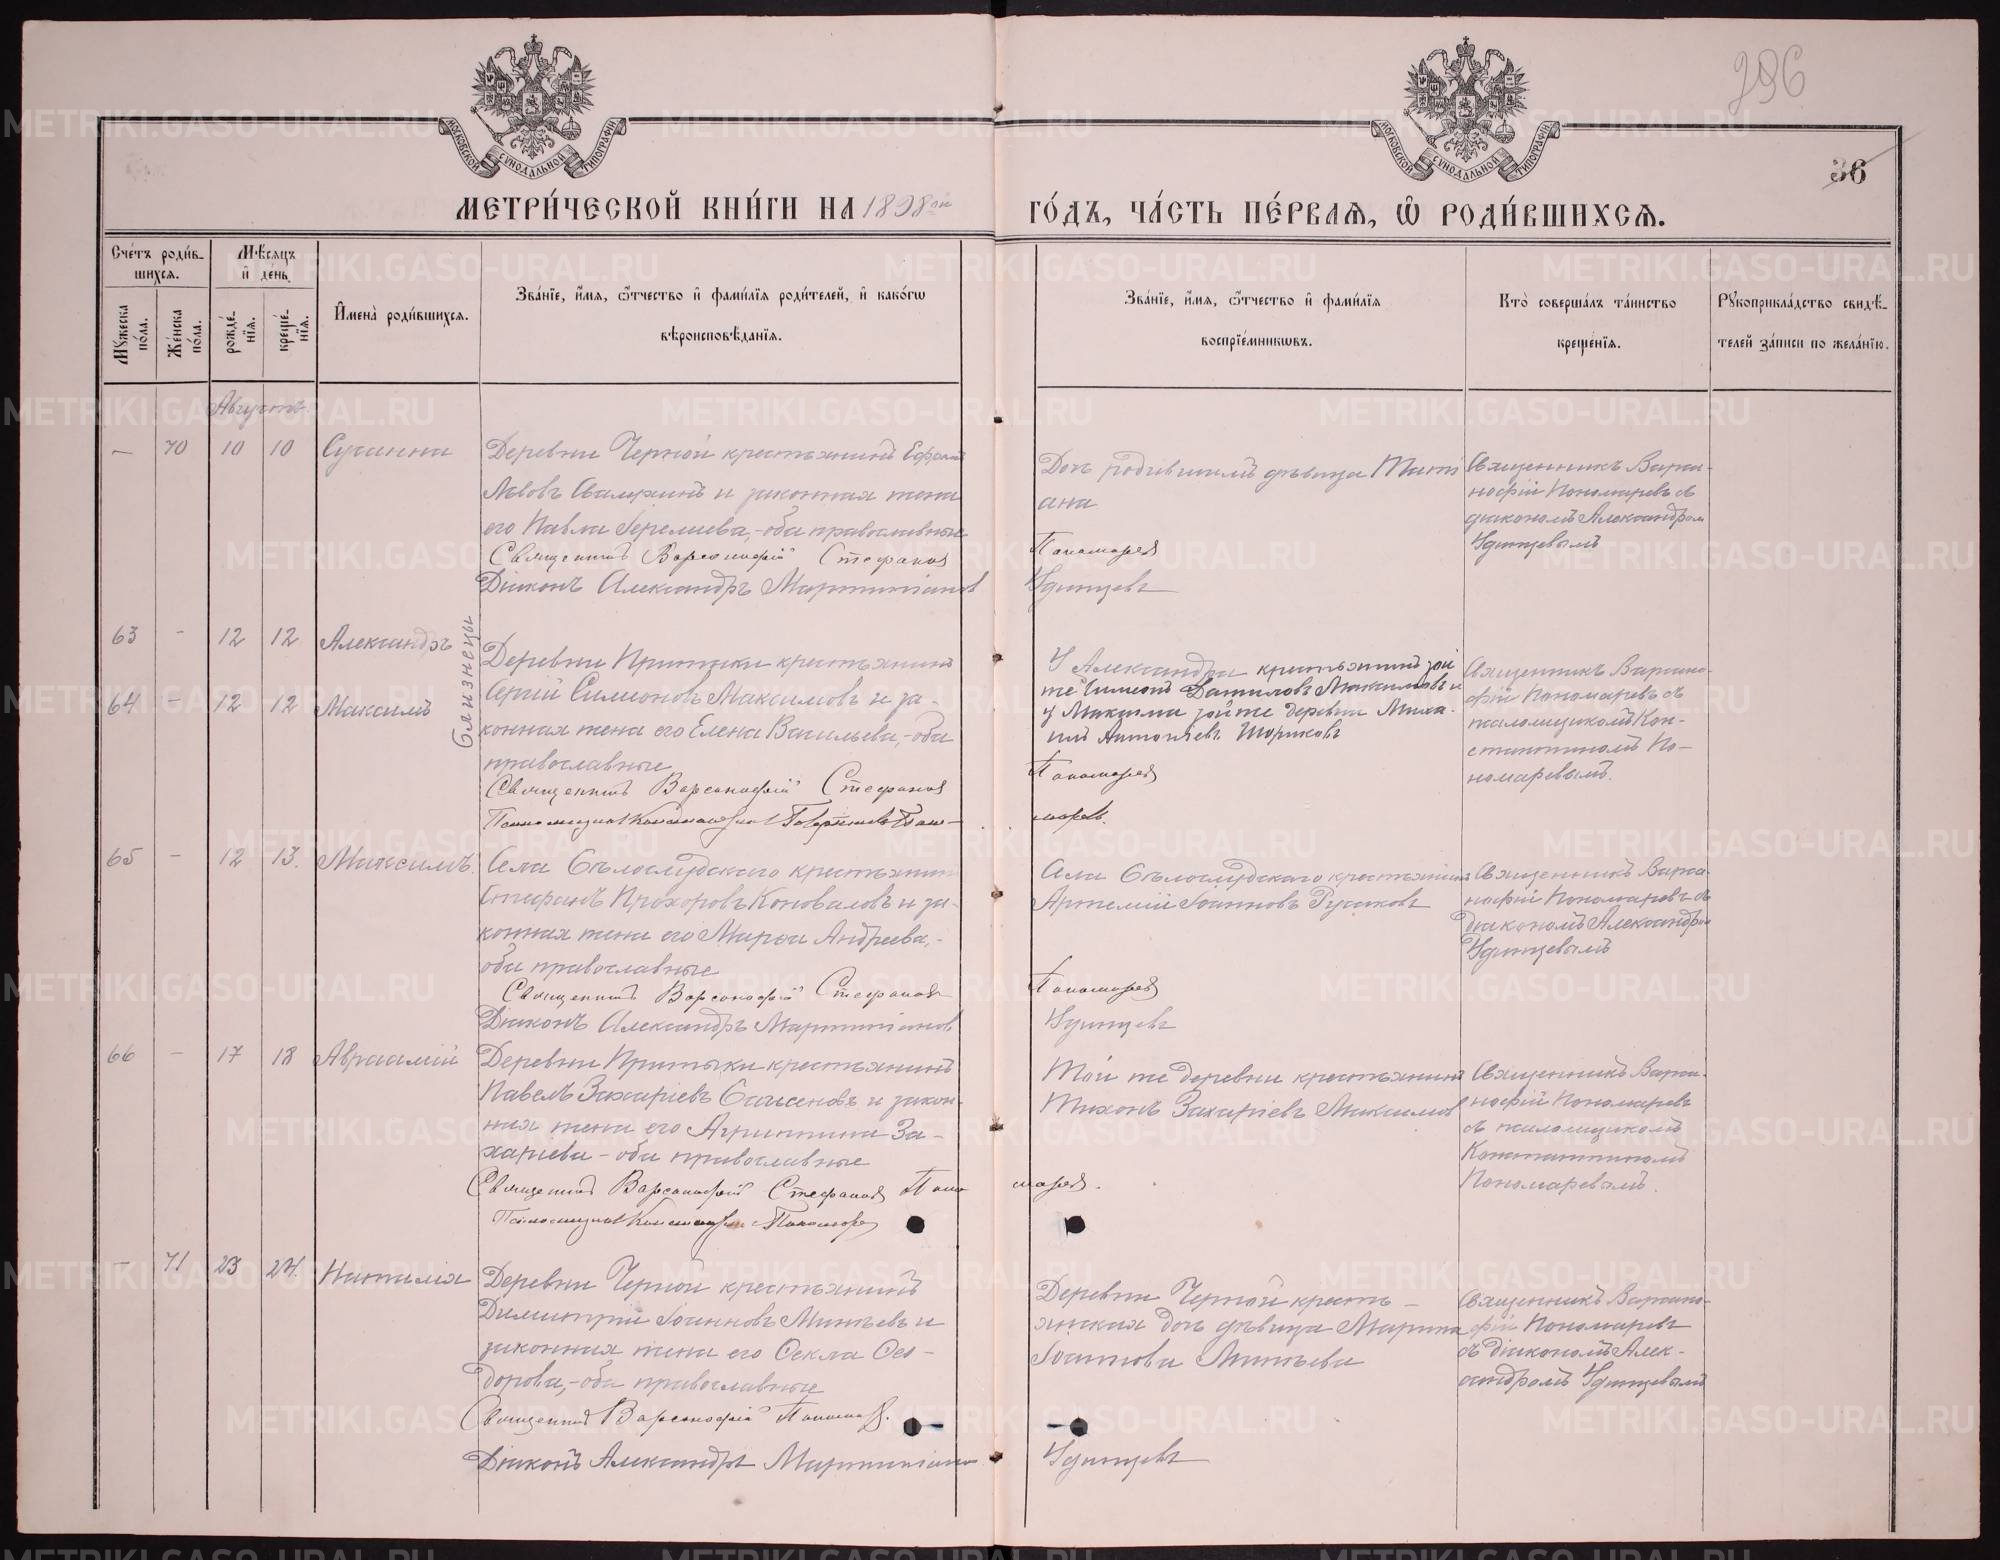 296
36
МОСКОВСКОЙ СУНОДАЛЬНОЙ ТИПОГРАФІИ
МОСКОВСКОЙ СУНОДАЛЬНОЙ ТИПОГРАФІИ
МЕТРИ́ЧЕСКОЙ КНИ́ГИ НА 1898 ой
ГО́ДЪ, ЧА́СТЬ ПЕ́РВАѦ, Ѡ҆ РОДИ́ВШИХСѦ.
Сче́тъ роди́в-
шихсѧ.
Мѣ́сѧцъ
и҆ де́нь
Мꙋ́жеска по́ла.
Же́нска по́ла.
рожде́-
нїѧ.
креще́-
нїѧ.
И҆мена̀ роди́вшихсѧ.
Зва́нїе, и҆́мѧ, ѻ҆́тчество и҆ фами́лїѧ роди́телей, и҆ како́гѡ
вѣроисповѣ́данїѧ.
Зва́нїе, и҆́мѧ, ѻ҆́тчество и҆ фами́лїѧ
воспрїе́мникѡвъ.
Кто̀ соверша́лъ та́инство
креще́нїѧ.
Рꙋкоприкла́дство свидѣ́-
телей за́писи по жела́нїю.
Августъ
— 70 10 10 Сусанна
Деревни Черной крестьянинъ Ефремъ
Львовъ и законная жена
его Павла Іеремиева,- оба православные
Священникъ Варсонофій Стефановъ
Діаконъ Александръ Мартиніановъ
Дочь родившимъ дѣвица Тати
ана
Пономаревъ
Удинцевъ
Священникъ Варсо-
нофій Пономаревъ съ
діакономъ Александромъ
Удинцевымъ
63 - 12 12 Александръ
64 - 12 12 Максимъ
близнецы
Деревни Притыки крестьянинъ
Сергій Симеоновъ Максимовъ и за-
конная жена его Елена Васильева,- оба
православные
Священникъ Варсонофій Стефановъ
Псаломщикъ Константинъ Поно-
У Александра крестьянинъ той
же Симеонъ Даниловъ Максимовъ и
у Максима той же деревни Миха-
илъ Антоніевъ Шориковъ
Пономаревъ
маревъ.
Священникъ Варсоно-
фій Пономаревъ съ
псаломщикомъ Кон-
стантиномъ По-
номаревымъ.
65 - 12 13. Максимъ.
Села Бѣлослудскаго крестьянинъ
Стефанъ Прохоровъ Коноваловъ и за-
конная жена его Марѳа Андреева,-
оба православные
Священникъ Варсонофій Стефановъ
Діаконъ Александръ Мартиніановъ
Села Бѣлослудскаго крестьянинъ
Артемій Іоанновъ Русаковъ
Пономаревъ
Удинцевъ
Священникъ Варсо-
нофій Пономаревъ съ
діакономъ Александромъ
Удинцевымъ
66 - 17 18 Авраамій
Деревни Притыки крестьянинъ
Павелъ Захаріевъ и закон-
ная жена его Агриппина За-
харіева - оба православные
Священникъ Варсонофій Стефановъ Поно
Псаломщикъ Константинъ Пономаревъ
Той же деревни крестьянинъ
Тихонъ Захаріевъ Максимовъ
маревъ.
Священникъ Варсо-
нофій Пономаревъ
съ псаломщикомъ
Константиномъ
Пономаревымъ.
- 71 23 24. Наталія
Деревни Черной крестьянинъ
Димитрій Іоанновъ Минѣевъ и
законная жена его Ѳекла Ѳео-
дорова,- оба православные
Священникъ Варсонофій Пономар.
Діаконъ Александръ Мартиніано
Деревни Черной кресть-
янская дочь дѣвица Марина
Іоаннова Минѣева
Удинцевъ
Священникъ Варсоно-
фій Пономаревъ
съ діакономъ Алек-
сандромъ Удинцевымъ